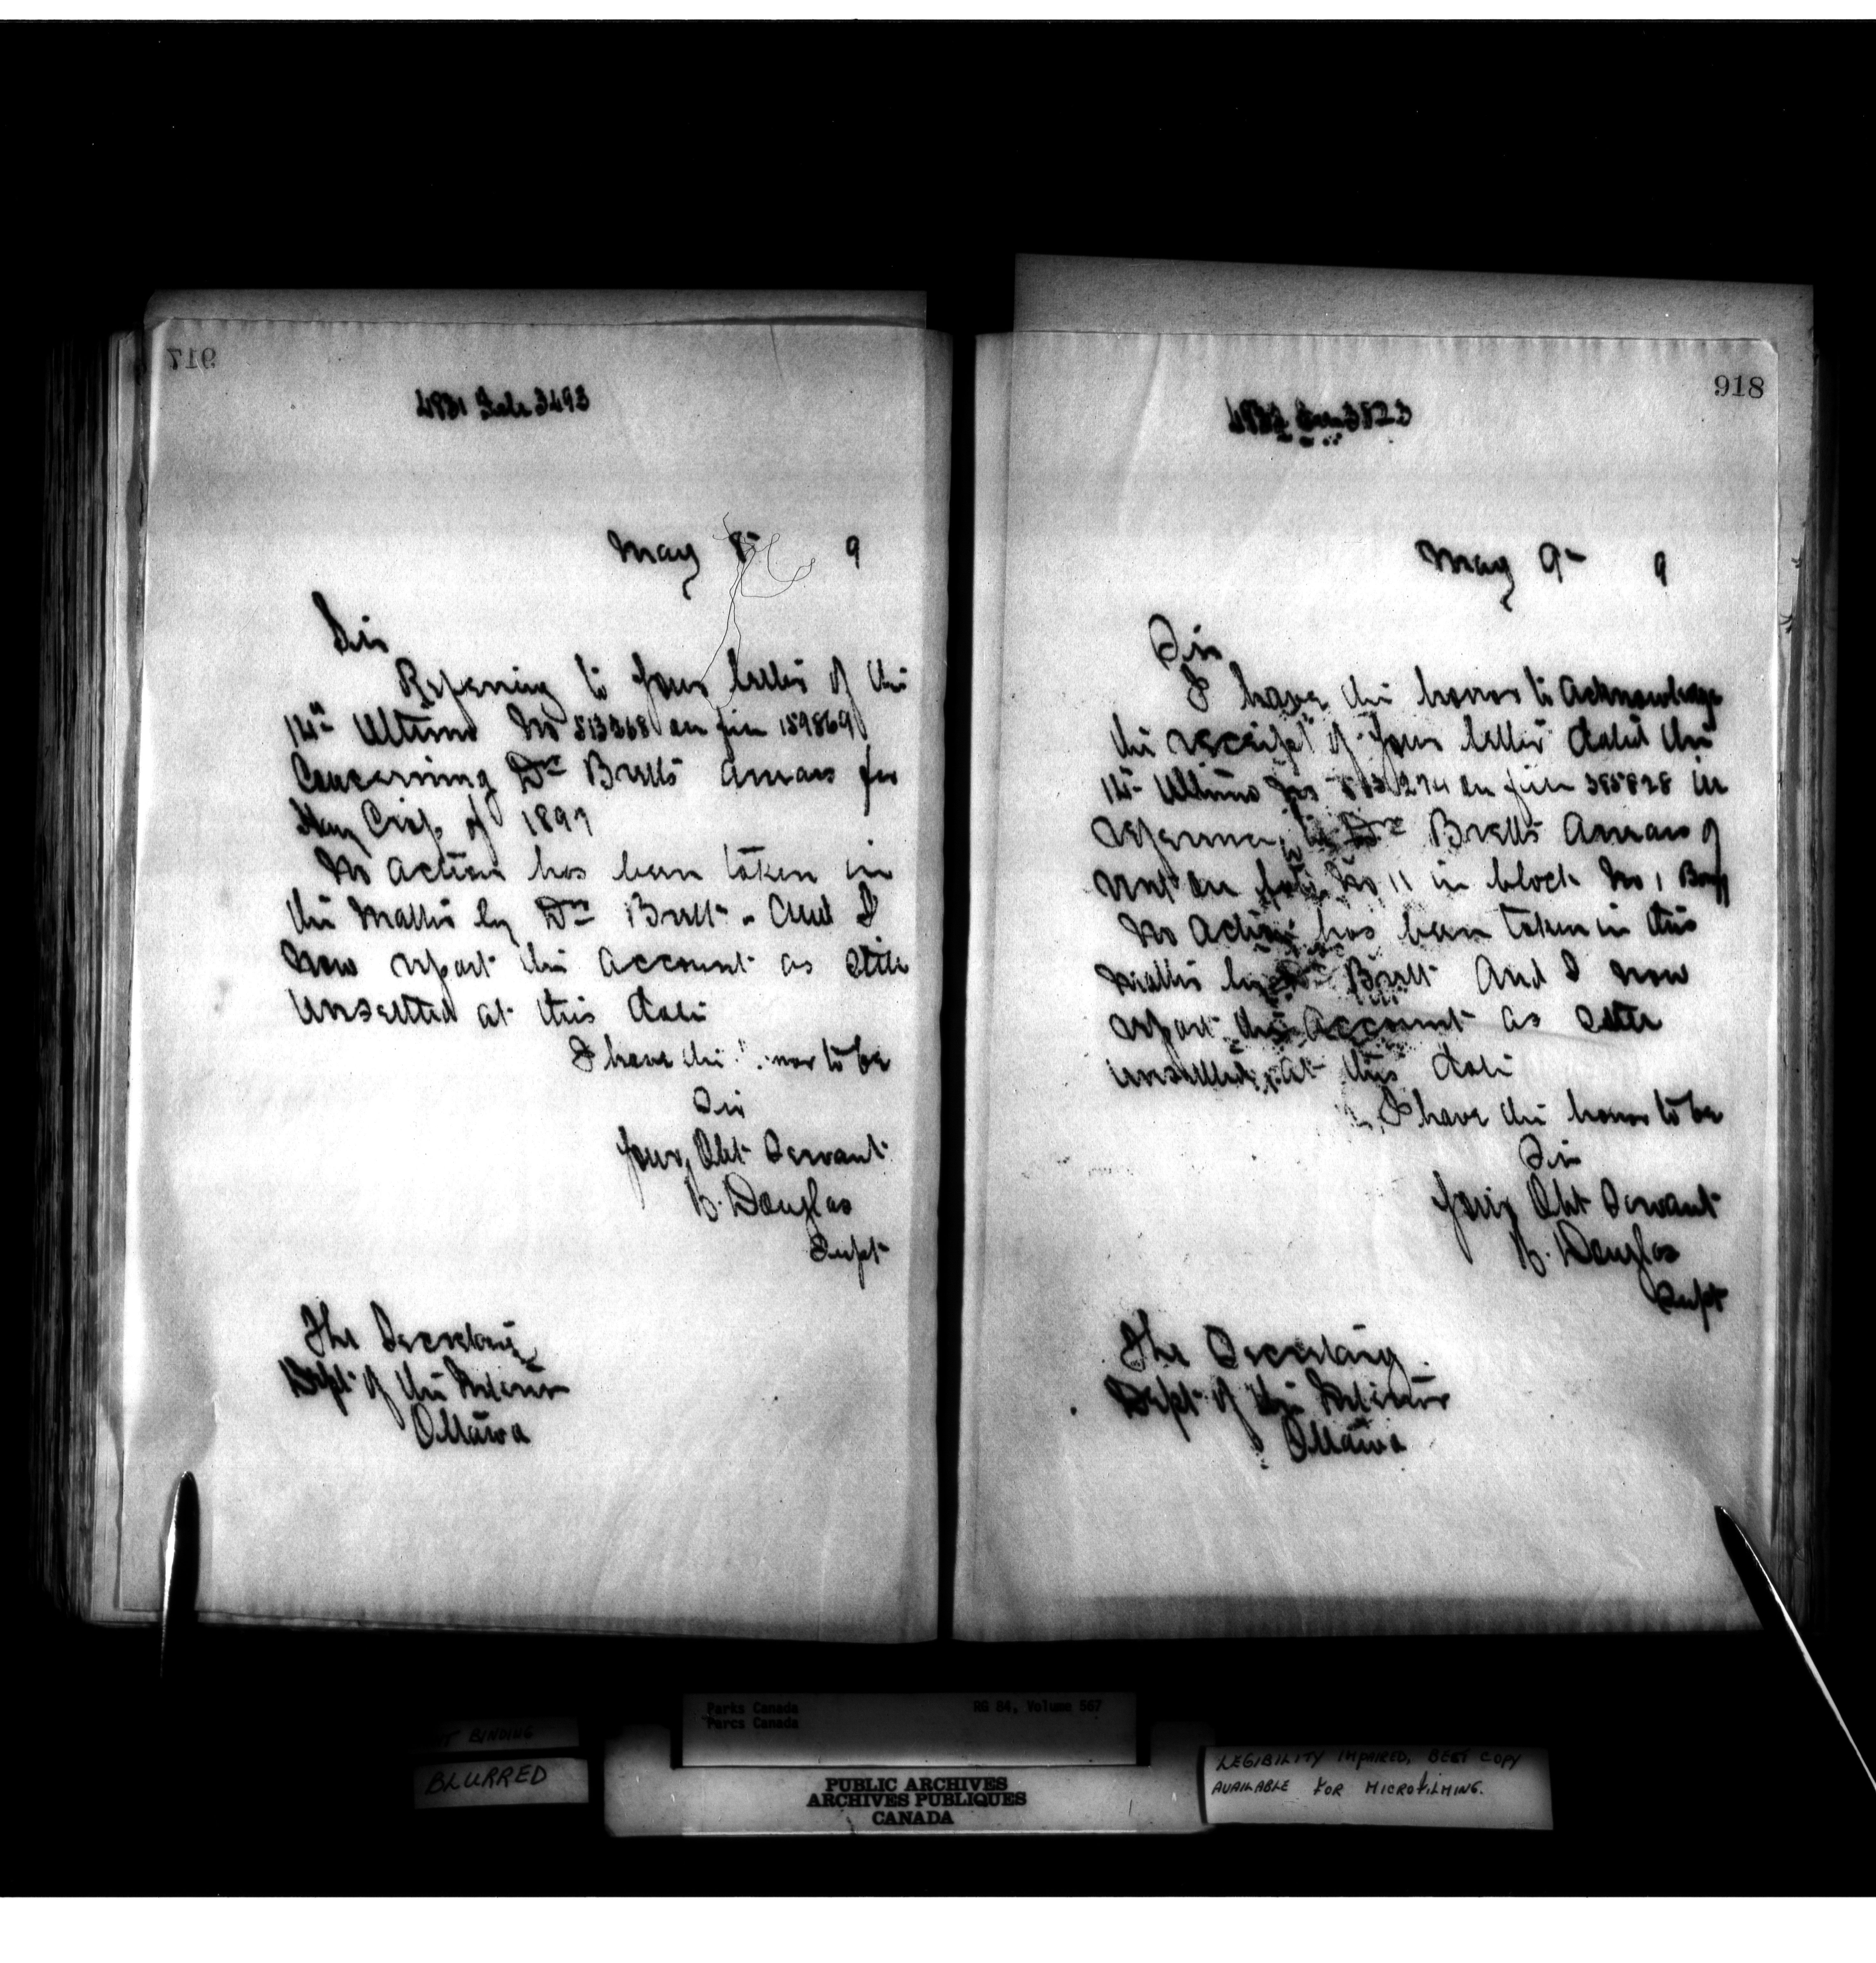 917
4831 Subs 3493
May 8th 9
Sir
Referring to your letter of the
14th Ultimo No 513368 on file 159869
Concerning Dr Bretts arrears for
Hay Crop of 1897
No action has been taken in
the Matter by Dr Brett - And I
now report the Account as still
Unsettled at this date
I have the honor to be
Sir
Your Obt Servant
H. Douglas
Supt
The Secretary
Dept of the Interior
Ottawa
918
3823
May 9th 9
Sir
I have the honor to Acknowledge
the receipt of your letter dated the
14th Ultimo No 513274 on file 385828 in
reference to Dr Bretts Arrears of
rent on No 11 in block No 1 Banff
No Action has been taken in this
matter by Dr Brett And I now
report this Account as still
unsettled at this date
I have the honor to be
Sir
Your Obt Servant
H. Douglas
Supt
The Secretary
Dept of the Interior
Ottawa
Parks Canada
Parcs Canada
RG 84, Volume 567
BINDING
BLURRED
PUBLIC ARCHIVES
ARCHIVES PUBLIQUES
CANADA
LEGIBILITY IMPAIRED, BEST COPY
AVAILABLE FOR MICROFILMING.